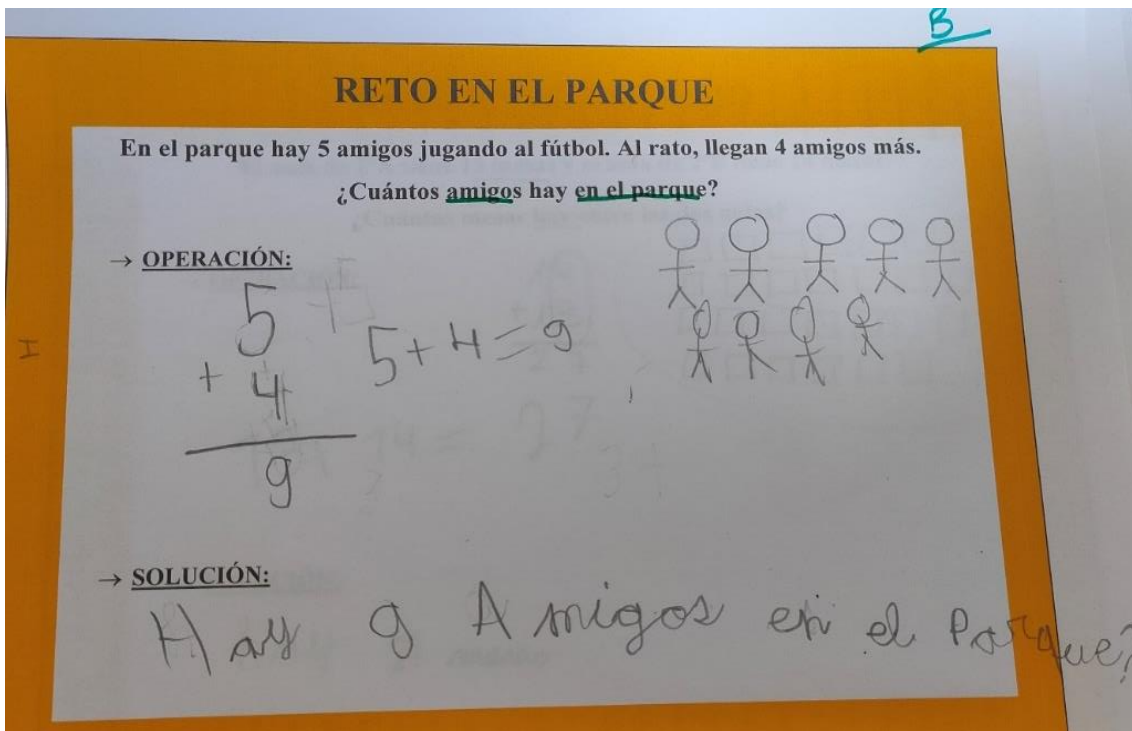 B
RETO EN EL PARQUE
En el parque hay 5 amigos jugando al fútbol. Al rato, llegan 4 amigos más.
¿Cuántos amigos hay en el parque?
→ OPERACIÓN:
5
+ 4
9
5+4=9
I
→ SOLUCIÓN:
Hay 9 Amigos en el Parque?